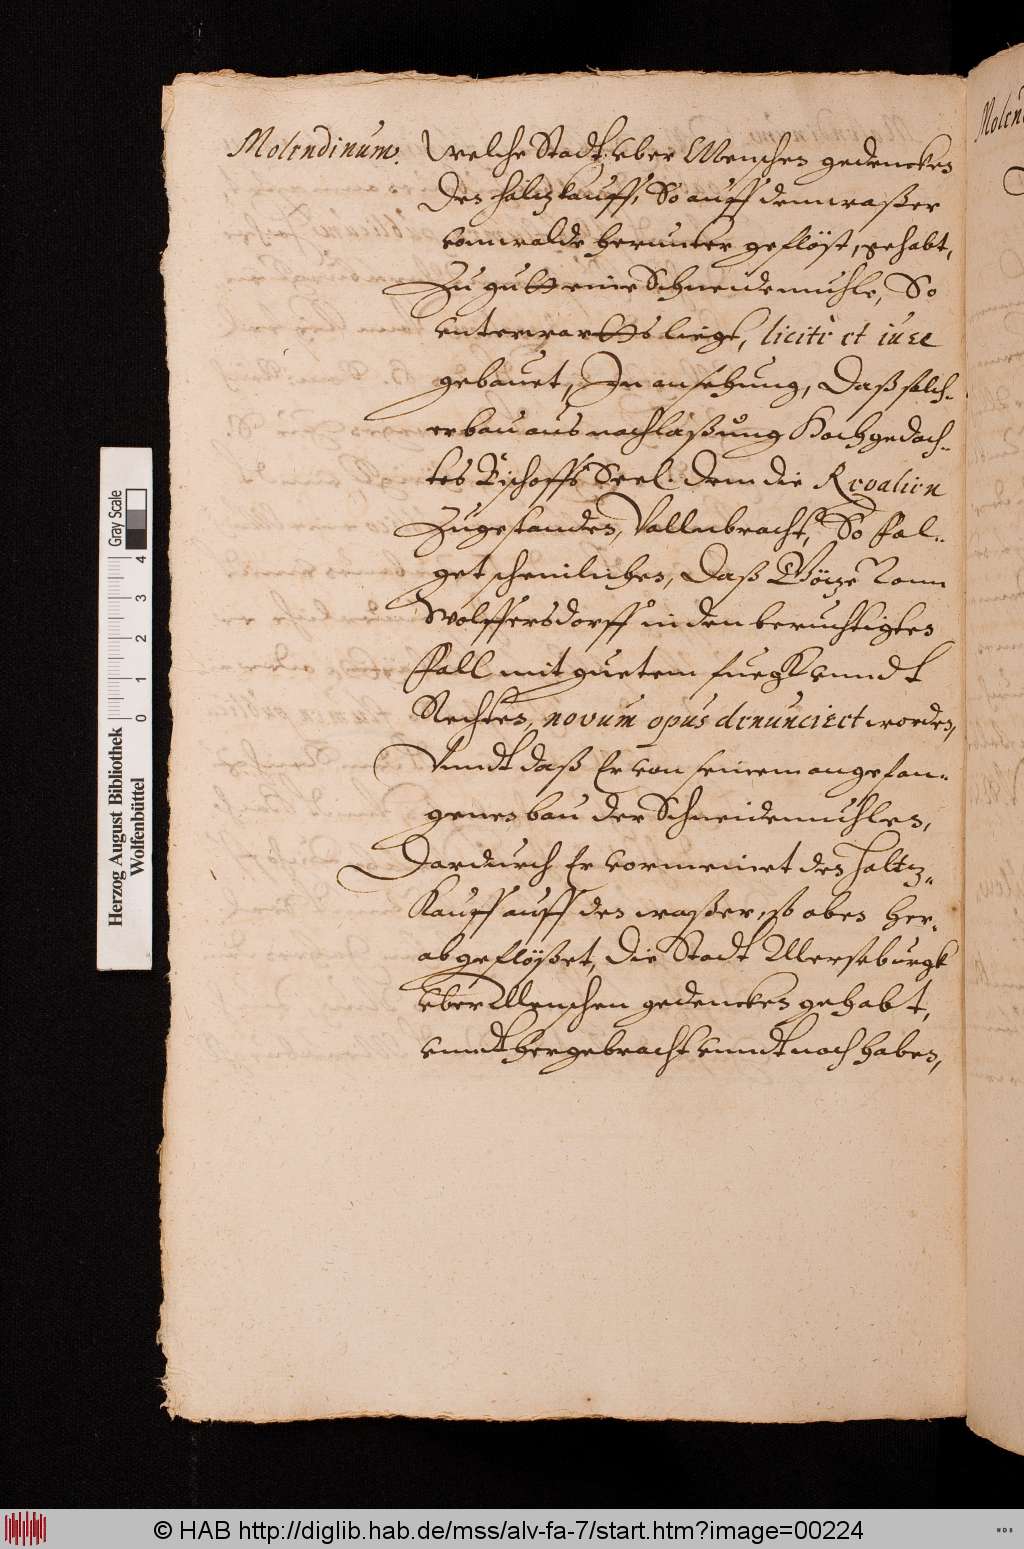 Molendinum.
Welche Stadt, uber Menschen gedencken
den holtzkauff, So auff dem waßer
vom walde herunter geflöst, gehabt,
Zu gutt eine Schneidemuhle, So
unterwartts liegt, licitè et iure
gebauet, In ansehung, Daß solch-
er bau aus nachlaßung Hochgedach-
tes Bischoffs Seel. dem die Regalien
Zugestanden, Vollnbracht, So fol-
get scheinlichen, Daß Götze Vonn
Wolffersdorff in den beruchtigten
Fall mit guetem fueg vnndt
Rechten, novum opus denunciert worden,
Vnndt daß Er von seinem angefan-
genen bau der Schneidemuhlen,
Dardurch Er vormeinet den holtz-
Kauff auff den waßer, so oben her-
abgeflößet, die Stadt Merseburgk
uber Menschen gedencken gehabt,
vnndt hergebracht vnndt noch haben,
Molen
Herzog August Bibliothek
Wolfenbüttel
Gray Scale
0 1 2 3 4
© HAB http://diglib.hab.de/mss/alv-fa-7/start.htm?image=00224